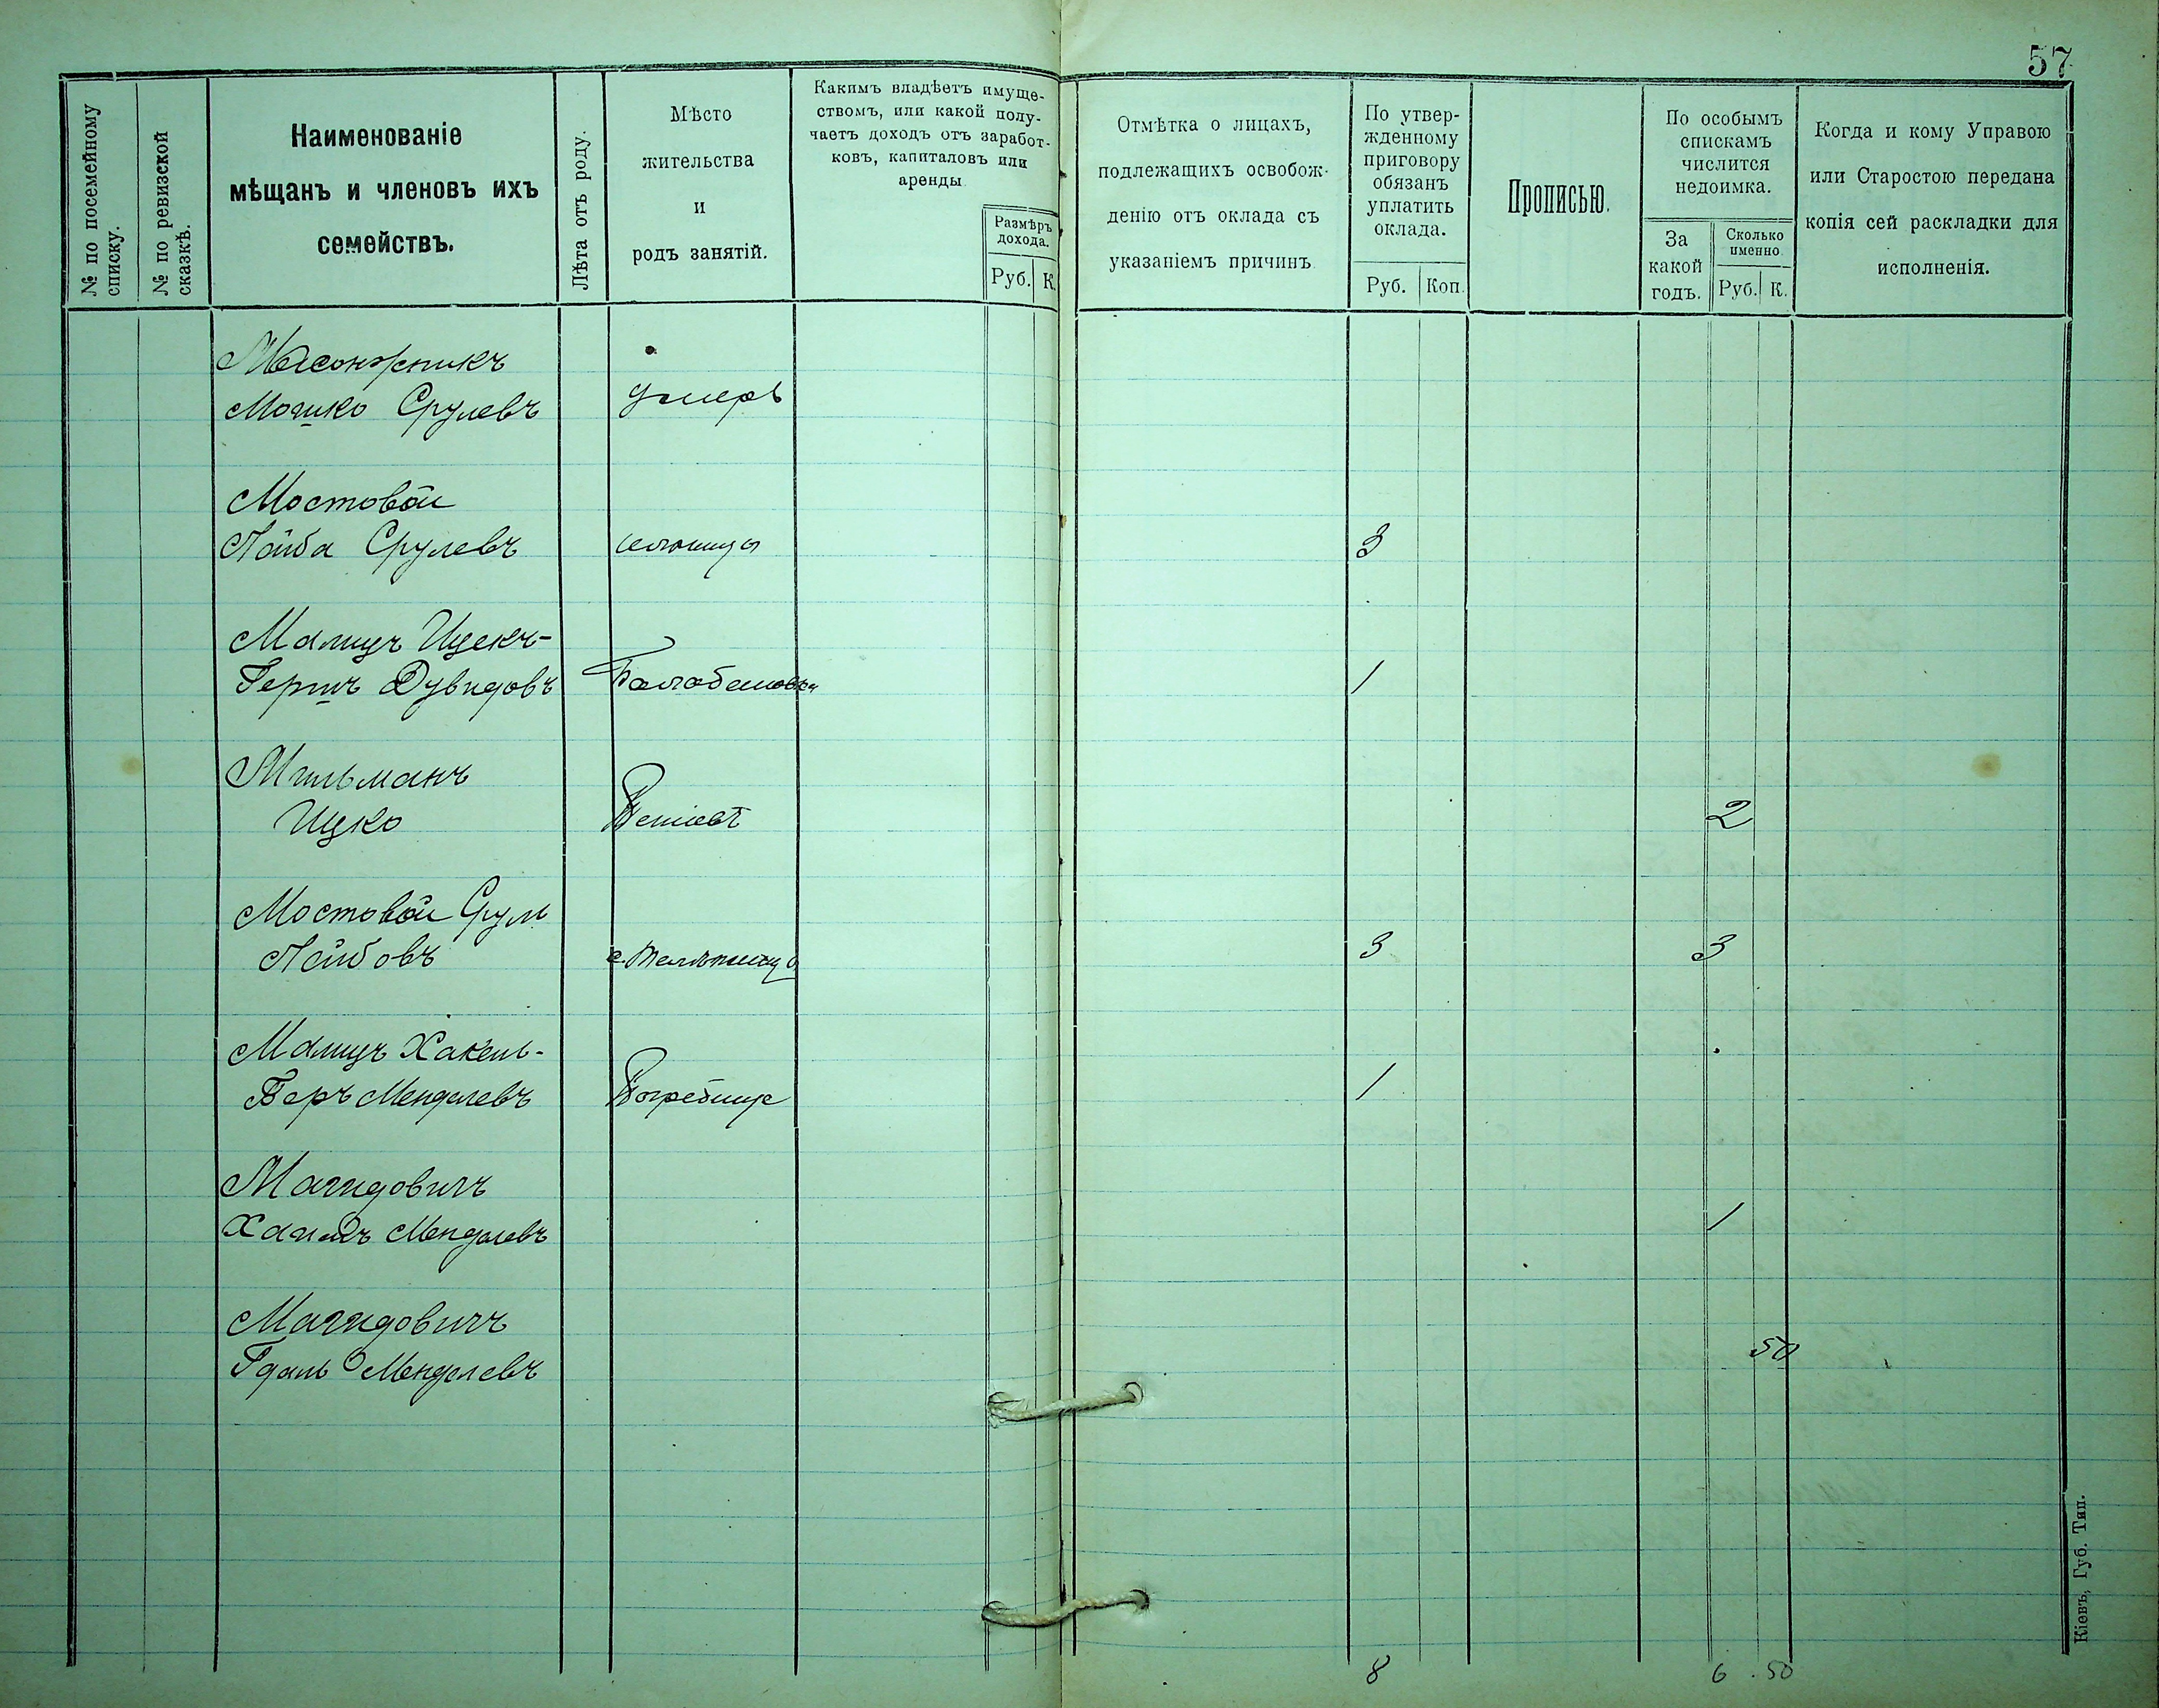 57
№ по посемейному списку.
№ по ревизской сказкѣ.
Наименованіе
мѣщанъ и членовъ ихъ
семействъ.
Лѣта отъ роду.
Мѣсто
жительства
и
родъ занятій.
Какимъ владѣетъ имуще-
ствомъ, или какой полу-
чаетъ доходъ отъ заработ-
ковъ, капиталовъ или
аренды
Размѣръ
дохода.
Руб. К.
Отмѣтка о лицахъ,
подлежащихъ освобож-
денію отъ оклада съ
указаніемъ причинъ
По утвер-
жденному
приговору
обязанъ
уплатить
оклада.
Руб. Коп.
Прописью.
По особымъ
спискамъ
числится
недоимка.
За
какой
годъ.
Сколько
именно
Руб. К.
Когда и кому Управою
или Старостою передана
копія сей раскладки для
исполненія.
Мошко Срулевъ умеръ
Мостовой
Лейба Срулевъ 3
Малицъ Ицекъ-
Гершъ Дувидовъ Балабановка 1
Мильманъ
Ицко 2
Мостовой Сруль
Лейбовъ 3 3
Малицъ
Беръ Менделевъ Погребище 1
Магидовичъ
Хаимъ Менделевъ 1
Магидовичъ
Гдаль Менделевъ 50
8 6.50
Кіевъ, Губ. Тип.